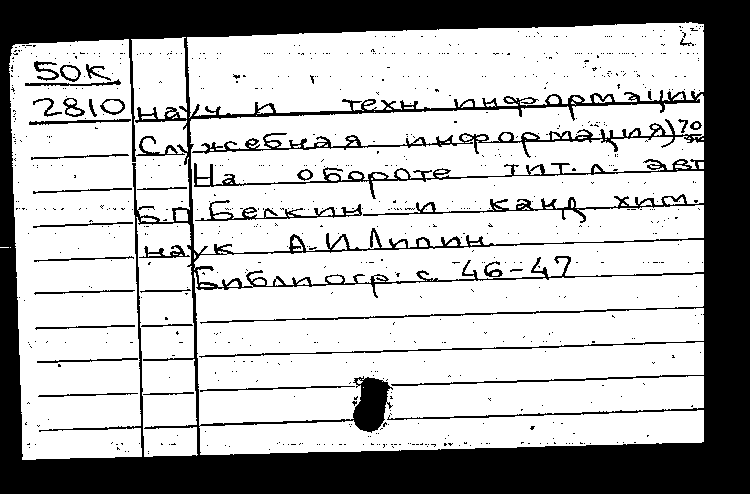 2
50К
2810 науч. и техн. информации
Служебная информация) 70
На обороте тит. л. авт
Б.П. Белкин и канд хим.
наук А.И. Липин.
Библиогр: с. 46-47